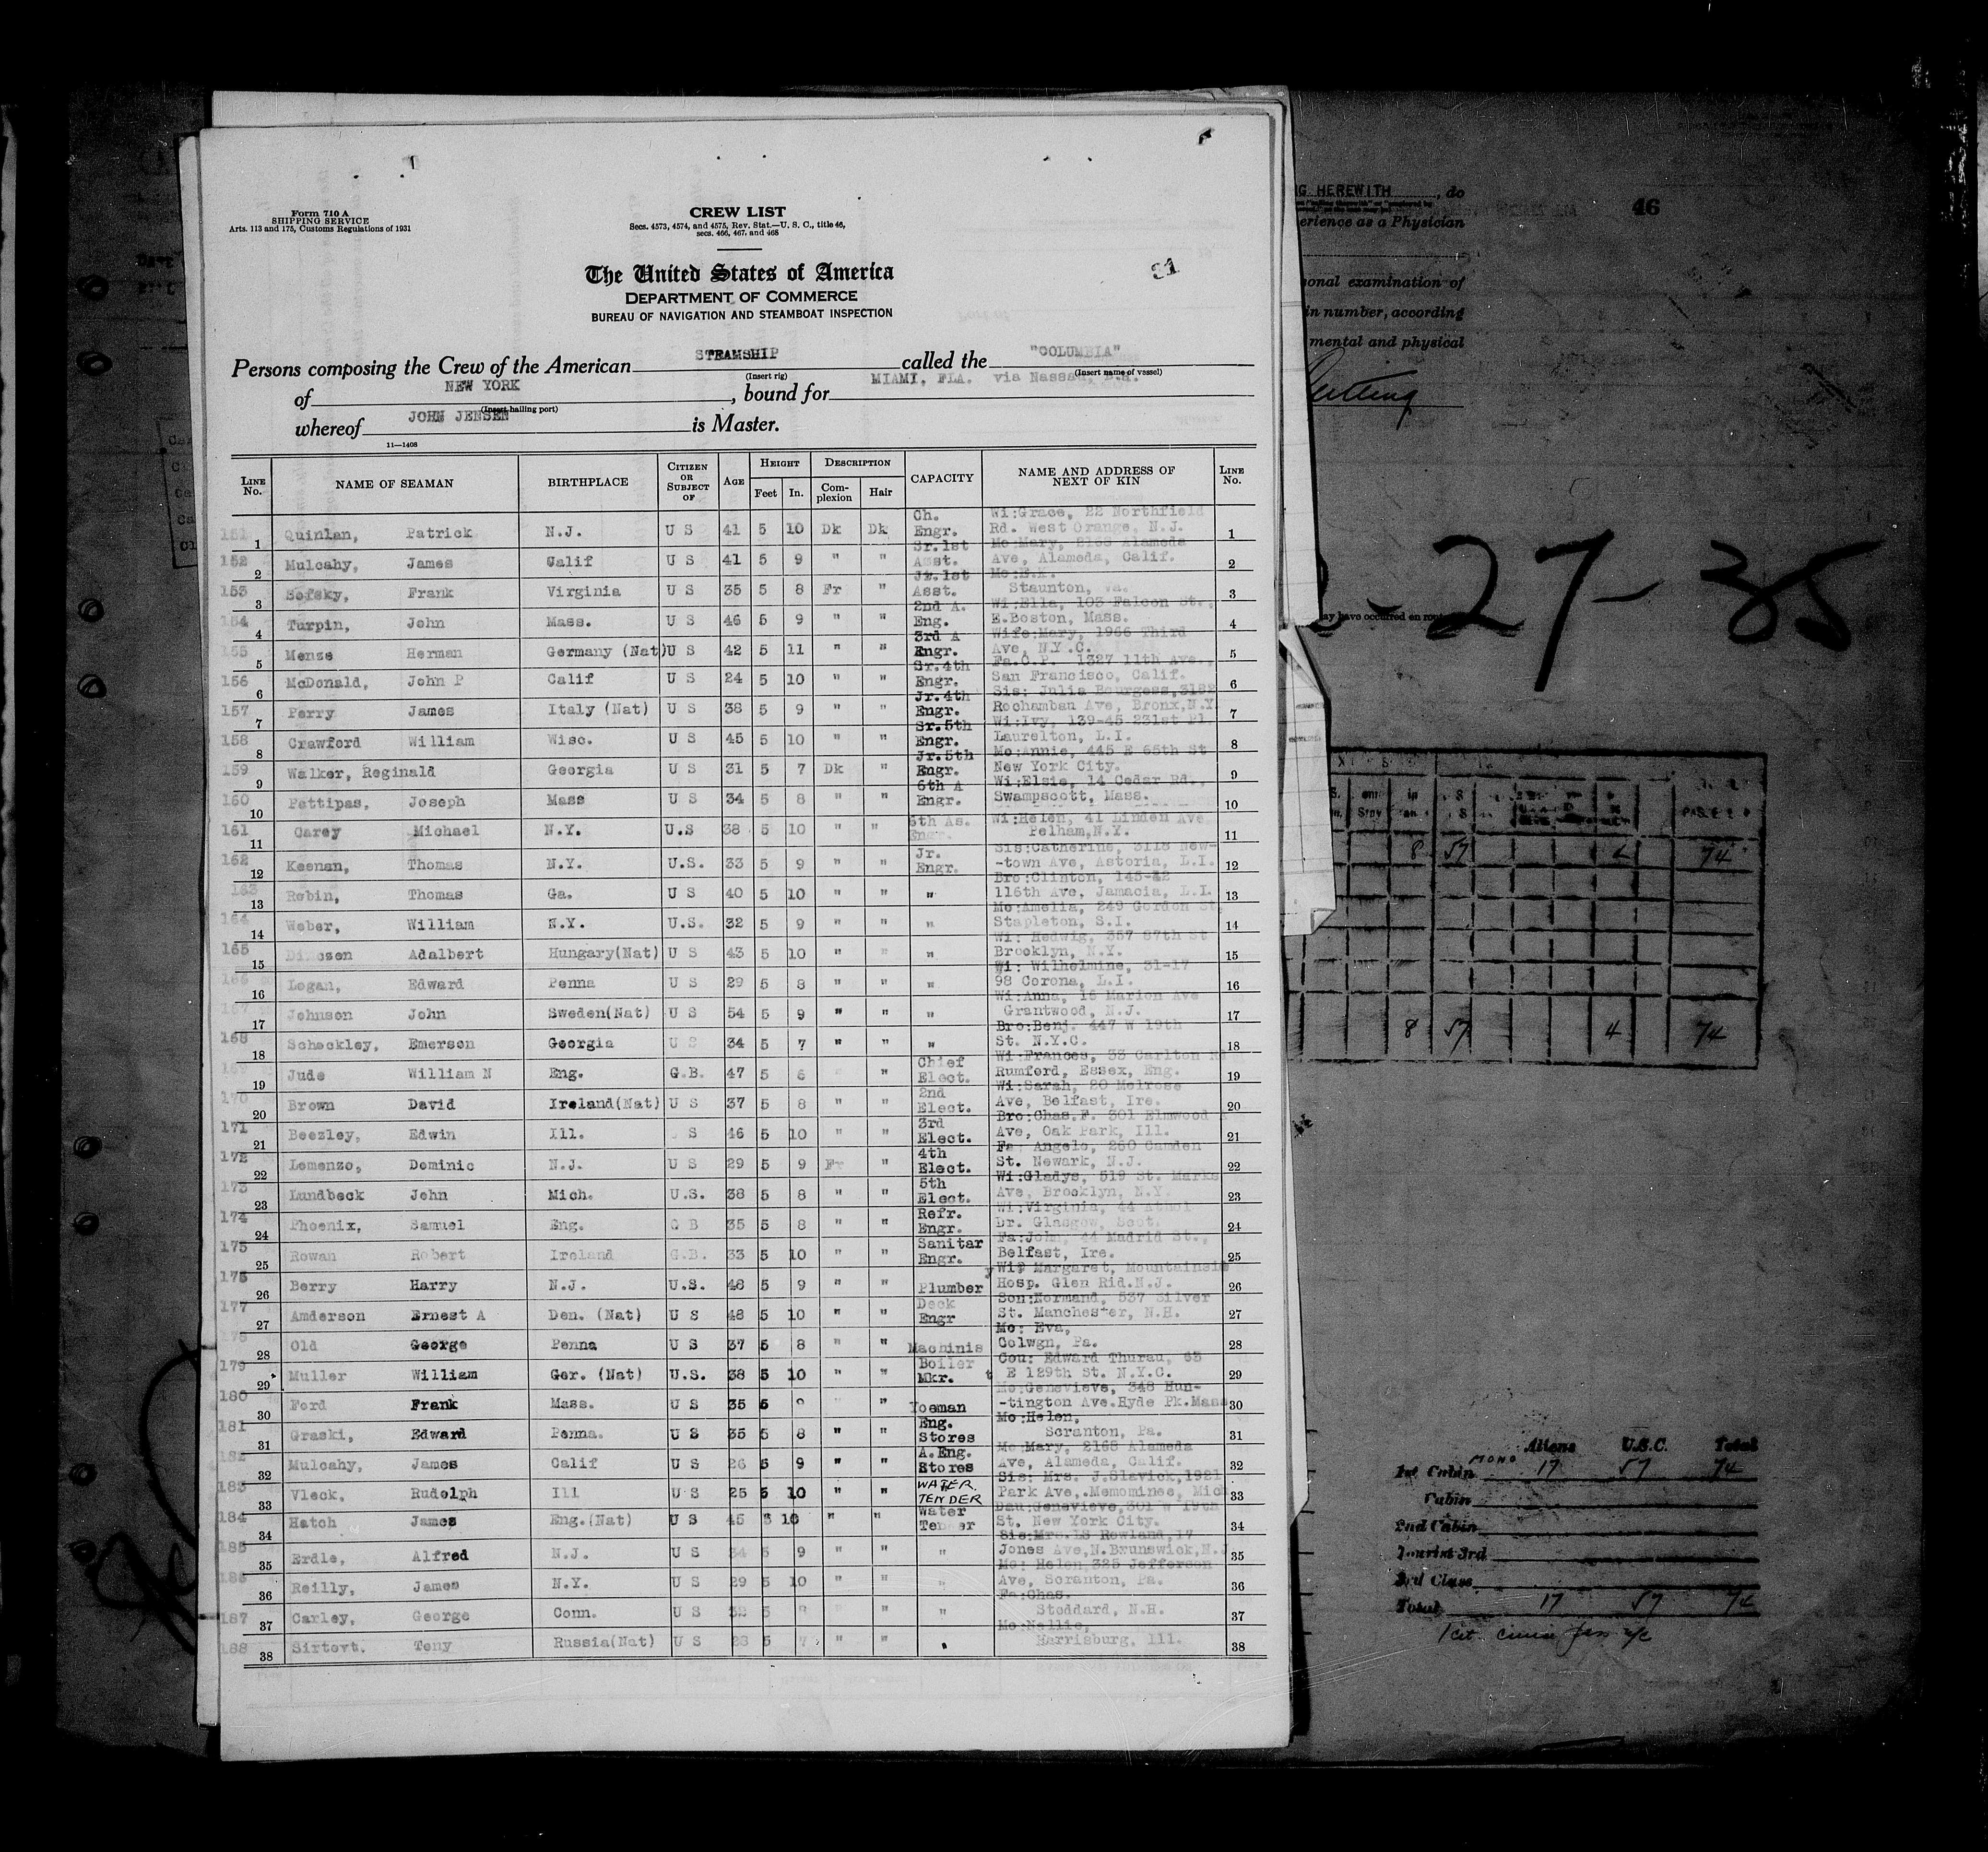 Form 710 A
SHIPPING SERVICE
Arts. 113 and 175, Customs Regulations of 1931
CREW LIST
Secs. 4573, 4574, and 4575, Rev. Stat.—U. S. C., title 46,
secs. 466, 467, and 468
The United States of America
DEPARTMENT OF COMMERCE
BUREAU OF NAVIGATION AND STEAMBOAT INSPECTION
Persons composing the Crew of the American STEAMSHIP called the "COLUMBIA"
(Insert rig) (Insert name of vessel)
of NEW YORK, bound for MIAMI, FLA. via Nassau,
(Insert hailing port)
whereof JOHN JENSEN is Master.
11—1408
LINE No. NAME OF SEAMAN BIRTHPLACE CITIZEN OR SUBJECT OF AGE HEIGHT Feet In. DESCRIPTION Complexion Hair CAPACITY NAME AND ADDRESS OF NEXT OF KIN LINE No.
151 1 Quinlan, Patrick N.J. U S 41 5 10 Dk Dk Ch. Engr. Wi:Grace, 22 Northfield Rd. West Orange, N.J. 1
152 2 Mulcahy, James Calif U S 41 5 9 " " Sr.1st Asst. Mo:Mary, 2168 Alameda Ave, Alameda, Calif. 2
153 3 Sofsky, Frank Virginia U S 35 5 8 Fr " Jr.1st Asst. Staunton, Va. 3
154 4 Turpin, John Mass. U S 46 5 9 " " 2nd A. Eng. Wi:Ella, 103 Falcon St., E.Boston, Mass. 4
155 5 Menze Herman Germany (Nat) U S 42 5 11 " " 3rd A Engr. Wife:Mary, 1966 Third Ave, N.Y.C. 5
156 6 McDonald, John P Calif U S 24 5 10 " " Sr.4th Engr. Fa.C.P. 1327 11th Ave., San Francisco, Calif. 6
157 7 Perry James Italy (Nat) U S 38 5 9 " " Jr.4th Engr. Sis: Julia Bourgess,3182 Rochambau Ave, Bronx,N.Y 7
158 8 Crawford William Wisc. U S 45 5 10 " " Sr.5th Engr. Wi:Ivy, 139-45 231st Pl. Laurelton, L.I. 8
159 9 Walker, Reginald Georgia U S 31 5 7 Dk " Jr.5th Engr. Mo:Annie, 445 E 65th St New York City. 9
160 10 Pettipas, Joseph Mass U S 34 5 8 " " 6th A Engr. Wi:Elsie, 14 Cedar Rd., Swampscott, Mass. 10
161 11 Carey Michael N.Y. U.S 38 5 10 " " 6th As. Engr. Wi:Helen, 41 Linden Ave Pelham,N.Y. 11
162 12 Keenan, Thomas N.Y. U.S. 33 5 9 " " Jr. Engr. Sis:Catherine, 3118 New- -town Ave, Astoria, L.I. 12
163 13 Robin, Thomas Ga. U S 40 5 10 " " " Bro:Clinton, 145-42 116th Ave, Jamacia, L.I. 13
164 14 Weber, William N.Y. U.S. 32 5 9 " " " Mo:Amelia, 249 Gordon St, Stapleton, S.I. 14
165 15 Adalbert Hungary(Nat) U S 43 5 10 " " " Wi: Hedwig, 357 87th St Brooklyn, N.Y. 15
166 16 Logan, Edward Penna U S 29 5 8 " " " Wi: Wilhelmine, 31-17 98 Corona, L.I. 16
167 17 Johnson John Sweden(Nat) U S 54 5 9 " " " Wi:Anna, 15 Marion Ave Grantwood, N.J. 17
168 18 Schackley, Emerson Georgia U S 34 5 7 " " " Bro:Benj. 447 W 19th St. N.Y.C. 18
169 19 Jude William N Eng. G.B. 47 5 6 " " Chief Elect. Wi:Frances, 33 Carlton Rd Rumford, Essex, Eng. 19
170 20 Brown David Ireland(Nat) U S 37 5 8 " " 2nd Elect. Wi:Sarah, 20 Melrose Ave, Belfast, Ire. 20
171 21 Beezley, Edwin Ill. S 46 5 10 " " 3rd Elect. Bro:Chas.F. 301 Elmwood Ave, Oak Park, Ill. 21
172 22 Lomenzo, Dominic N.J. U S 29 5 9 Fr " 4th Elect. Fa: Angelo, 250 Camden St. Newark, N.J. 22
173 23 Lundbeck John Mich. U.S. 38 5 8 " " 5th Elect. Wi:Gladys, 519 St. Marks Ave, Brooklyn, N.Y. 23
174 24 Phoenix, Samuel Eng. G B 35 5 8 " " Refr. Engr. Wi:Virginia, 44 Athol Dr. Glasgow, Scot. 24
175 25 Rowan Robert Ireland G.B. 33 5 10 " " Sanitary Engr. Fa:John, 44 Madrid St., Belfast, Ire. 25
176 26 Berry Harry N.J. U.S. 48 5 9 " " Plumber Wi? Margaret, Mountainsid Hosp. Glen Rid.N.J. 26
177 27 Amderson Ernest A Den. (Nat) U S 48 5 10 " " Deck Engr Son:Normand, 537 Silver St. Manchester, N.H. 27
178 28 Old George Penna U S 37 5 8 " " Machinist Mo: Eva, Colwgn, Pa. 28
179 29 Muller William Ger. (Nat) U.S. 38 5 10 " " Boiler Mkr. Cou: Edward Thurau, 63 E 129th St. N.Y.C. 29
180 30 Ford Frank Mass. U S 35 5 9 " " Yoeman Mo:Genevieve, 348 Hun- -tington Ave.Hyde Pk.Mass 30
181 31 Graski, Edward Penna. U S 35 5 8 " " Eng. Stores Mo:Helen, Scranton, Pa. 31
182 32 Mulcahy, James Calif U S 26 5 9 " " A.Eng. Stores Mo:Mary, 2168 Alameda Ave, Alameda, Calif. 32
183 33 Vleck, Rudolph Ill U S 25 5 10 " " WATER TENDER Sis: Mrs. J.Slavick,1921 Park Ave,.Memominee, Mich 33
184 34 Hatch James Eng.(Nat) U S 45 5 10 " " Water Tender Dau:Genevieve,301 W 19th St. New York City. 34
185 35 Erdle, Alfred N.J. U S 34 5 9 " " " Sis:Mrs. Rowland,17 Jones Ave,N.Brunswick,N.J 35
186 36 Reilly, James N.Y. U S 29 5 10 " " " Mo: Helen,325 Jefferson Ave, Scranton, Pa. 36
187 37 Carley, George Conn. U S 32 5 " " Fa:Chas. Stoddard, N.H. 37
188 38 Sirtovt. Tony Russia(Nat) U S 28 5 7 " " " Mo:Nellie, Harrisburg, Ill. 38
HEREWITH, do
46
erience as a Physician
sonal examination of
in number, according
mental and physical
- 27 - 35
may have occurred en rout
8 57 74
8 57 4 74
Aliens U.S.C. Total
1st Cabin MONO 17 57 74
Cabin
2nd Cabin
Tourist 3rd
3rd Class
Total 17 57 74